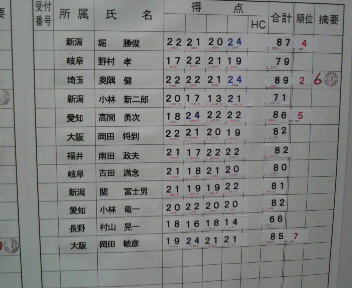 受付番号 所属 氏名 得点 HC 合計 順位 摘要
新潟 堀 勝俊 22 21 20 24 87 4
岐阜 野村 孝 17 22 21 19 79
埼玉 奥隅 健 22 22 21 24 89 2 6
新潟 小林 新二郎 20 17 13 21 71
愛知 高間 勇次 18 24 22 22 86 5
大阪 岡田 将到 22 21 20 19 82
福井 南田 政夫 21 17 22 22 82
岐阜 古田 満念 21 18 21 20 80
新潟 関 富士男 21 19 19 22 81
愛知 小林 竜一 20 22 20 20 82
長野 村山 晃一 18 16 18 14 66
大阪 岡田 敏彦 19 24 21 21 85 7